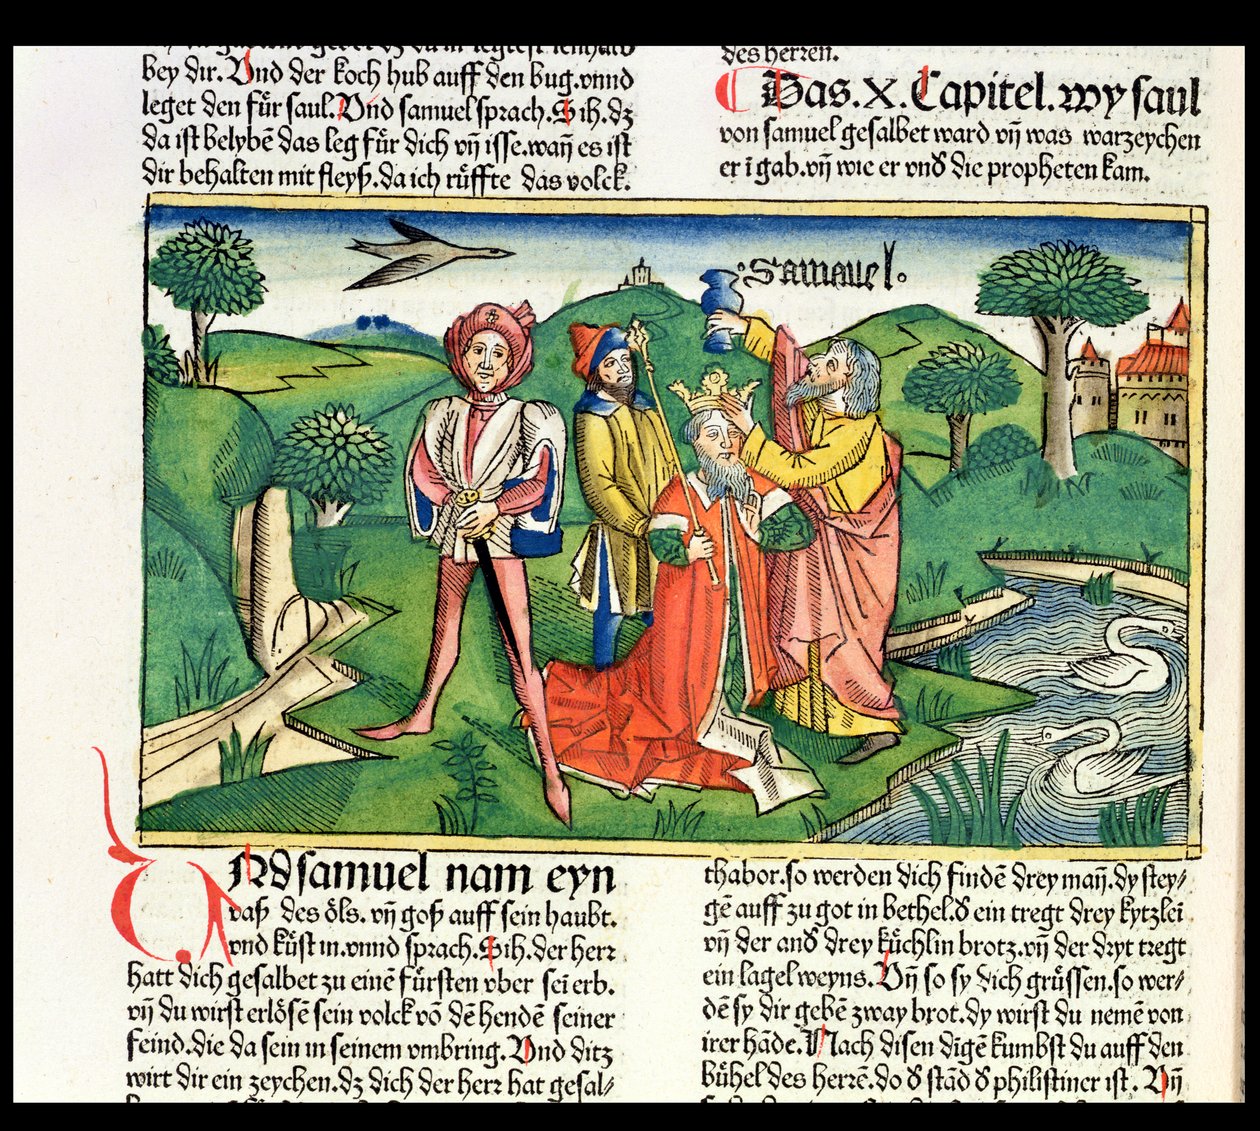 bey dir. Und der koch hub auff den bug. vnnd
leget den fůr saul. Vnd samuel sprach. Sih. dz
da ist belybē das leg fůr dich vñ isse. wañ es ist
dir behalten mit fleyß. da ich růffte das volck.
des herren.
Das. X. Capitel. wy saul
von samuel gesalbet ward vñ was warzeychen
er ī gab. vñ wie er vnd die propheten kam.
Samuel.
Und samuel nam eyn
vaß des ŏls. vñ goß auff sein haubt.
vnd kůst in. vnnd sprach. Sih. der herr
hatt dich gesalbet zu einē fůrsten vber sei erb.
vñ du wirst erlŏsē sein volck vō dē hendē seiner
feind. die da sein in seinem vmbring. Vnd ditz
wirt dir ein zeychen. dz dich der herr hat gesal⸗
thabor. so werden dich findē drey mañ. dy stey⸗
gē auff zu got in bethel. d ein tregt drey kytzleī
vñ der and drey kůchlin brotz. vñ der dryt tregt
ein lagel weyns. Vñ so sy dich grůssen. so wer⸗
dē sy dir gebē zway brot. dy wirst du nemē von
irer hāde. Nach disen dīgē kumbst du auff den
bůhel des herrē. do d stād d philistiner ist. Vñ